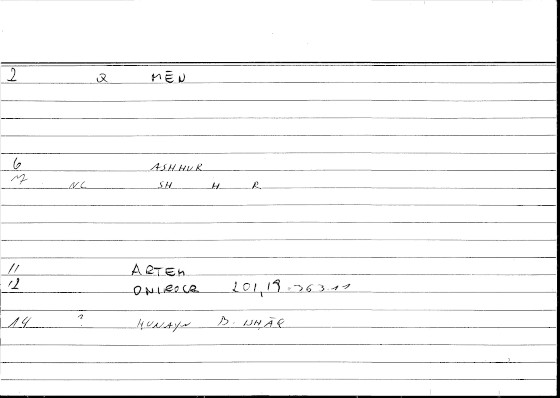 2 Q MĒN
6 ASHHUR
7 NC SH H R
11 ARTEM
12 ONIROCR 201,19-363.11
14 ? HUNAYN B. ISHĀQ